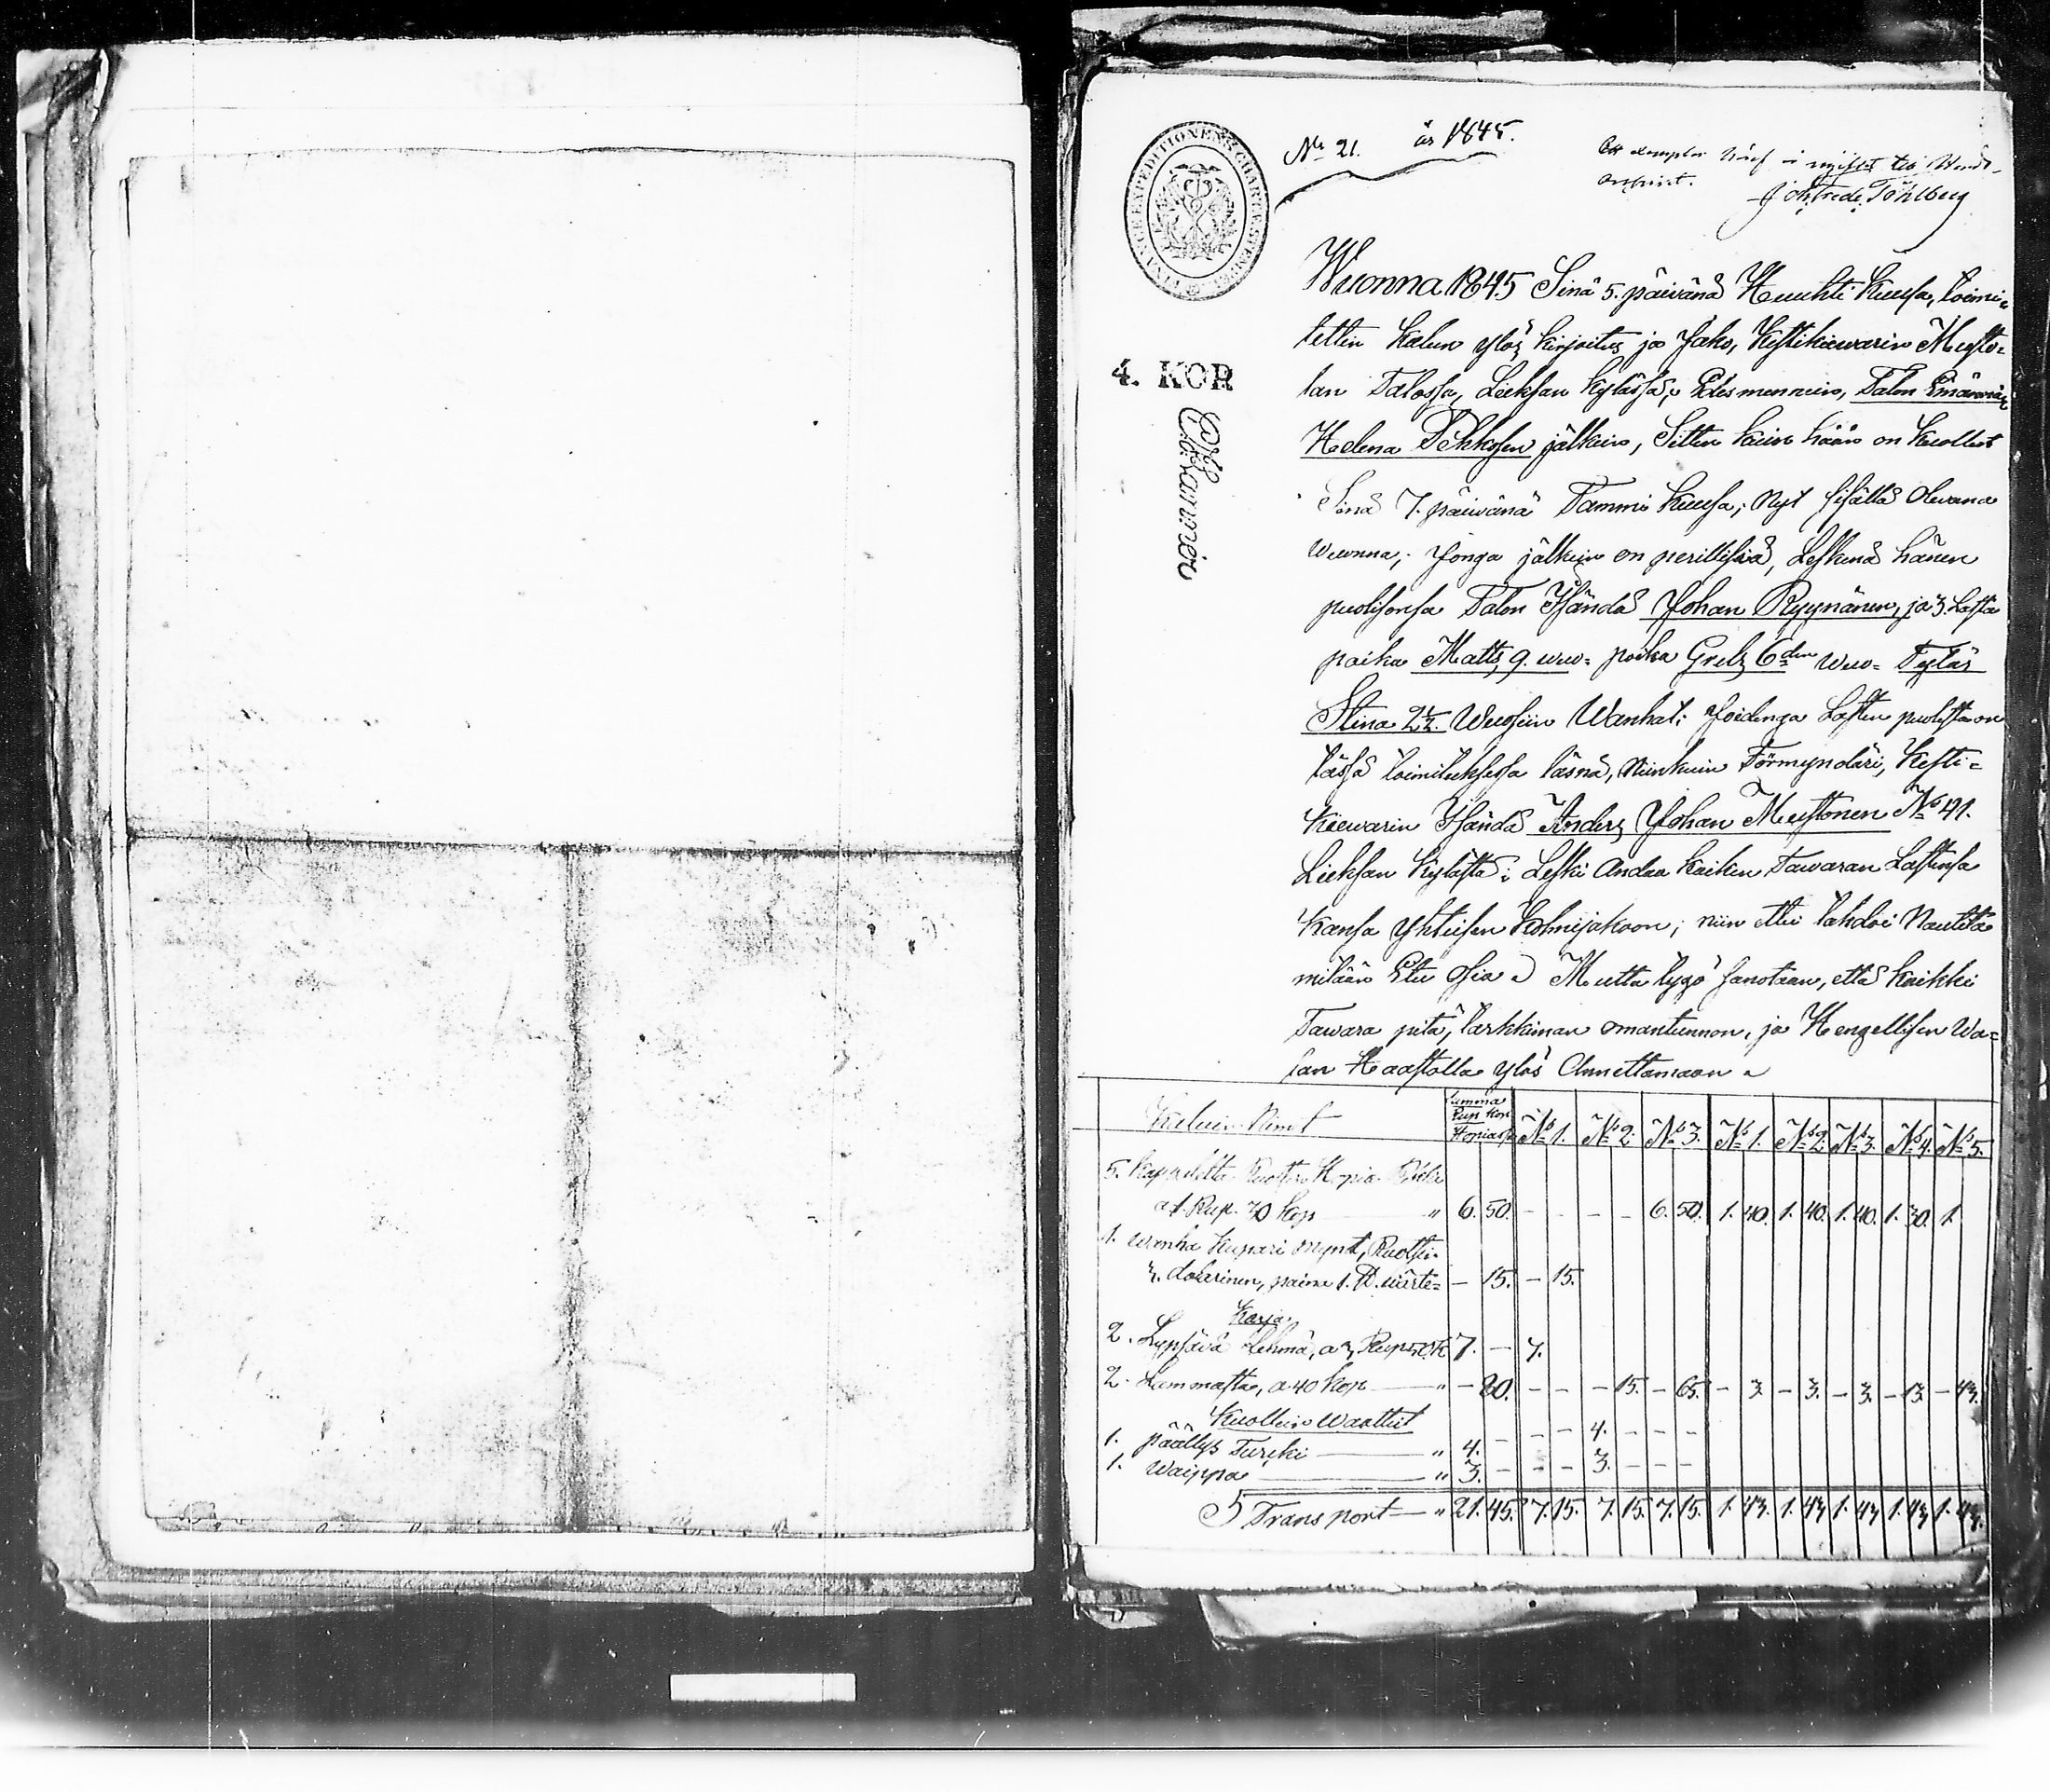 FINANCE EXPEDITIONENS CHARTÆ STEMPEL
4. KOP
No 21. år 1845.
Ett exemplar till
Wuonna 1845 Sinä 5. päivänä Huuhti Kuusa, toimi=
tettin Kalun ylös kirjoitus ja Jako, Kestikiewarin Musto=
lan Talossa, Lieksan Kylässä, Edesmennein, Talon Emännän
Helena Pekkosen jälkein, Sitten kuin hään on Kuollut
Sinä 7. päiwänä Tammi Kuusa, Nyt sisällä Olewana
Wuonna, Jonga jälkein on perillisiä, Leskenä hänen
puolisonsa Talon Isändä Johan Ryynänen, ja 3. Lasta
poika Matts 9. wuo= poika Grels 6den wuo= Tytär
Stina 2½ Wuosiin Wanhat: Joidenga Lasten puolesta on
tässä toimituksessa läsnä, Niinkuin Förmyndäri, Kesti=
Kiewarin Isändä Anders Johan Mustonen No 41.
Lieksan Kylästä; Leski Andaa Kaiken Tawaran Lastensa
Kansa Yhteisen Kolmijakoon; niin ettei tahdoi Nautita
mitään Etu Osia Mutta tygö sanotaan, että Kaikki
Tawara pitä, tarkkiman omantunnon, ja Hengellisen Wa=
lan Haastolla ylös Annettamaan
Kaluin Nimit Summa Rup Kop Hopiasa No 1. No 2. No 3. No 1. No 2. No 3. No 4. No 5.
5. Kappaletta Ruottin Hopia
a 1. Rup. 30 Kop " 6. 50. - - - - 6. 50. 1. 40. 1. 40. 1. 40. 1. 30. 1.
1. Wanha Kupari Mynt, Ruotsi=
3. dalerinen, paina - 15. - 15.
Karja.
2. Lypsävä Lehmä, a 3 Rup 50 K 7. - 7.
2. Lammasta, a 40 Kop " - 80. - - - 15. - 65. - 3. - 3. - 3. - 13. - 43.
Kuollein Waattet
1. päällys Turcki " 4. - - - 4. - - -
1. Waippa " 3. - - - 3. - - -
Transport " 21. 45. 7. 15. 7. 15. 7. 15. 1. 43. 1. 43. 1. 43. 1. 43. 1. 43.